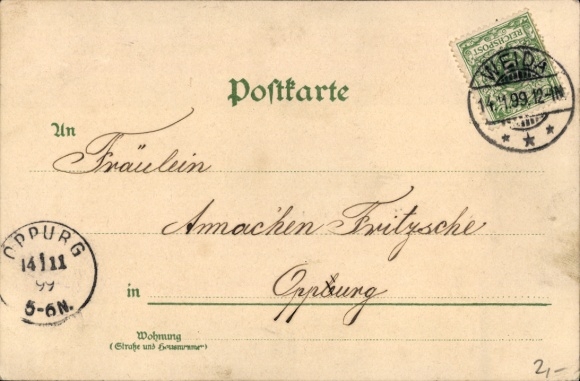 REICHSPOST
WEIDA
14.11.99.12-1N.
Postkarte
An
Fräulein
Annachen Fritzsche
OPPURG
14 11
99
5-6N.
in
Oppburg
Wohnung
(Straße und Hausnummer)
2,-